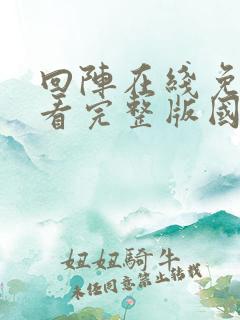 回陣在线免
看完整版國
妞妞騎牛
未任同意禁止转载